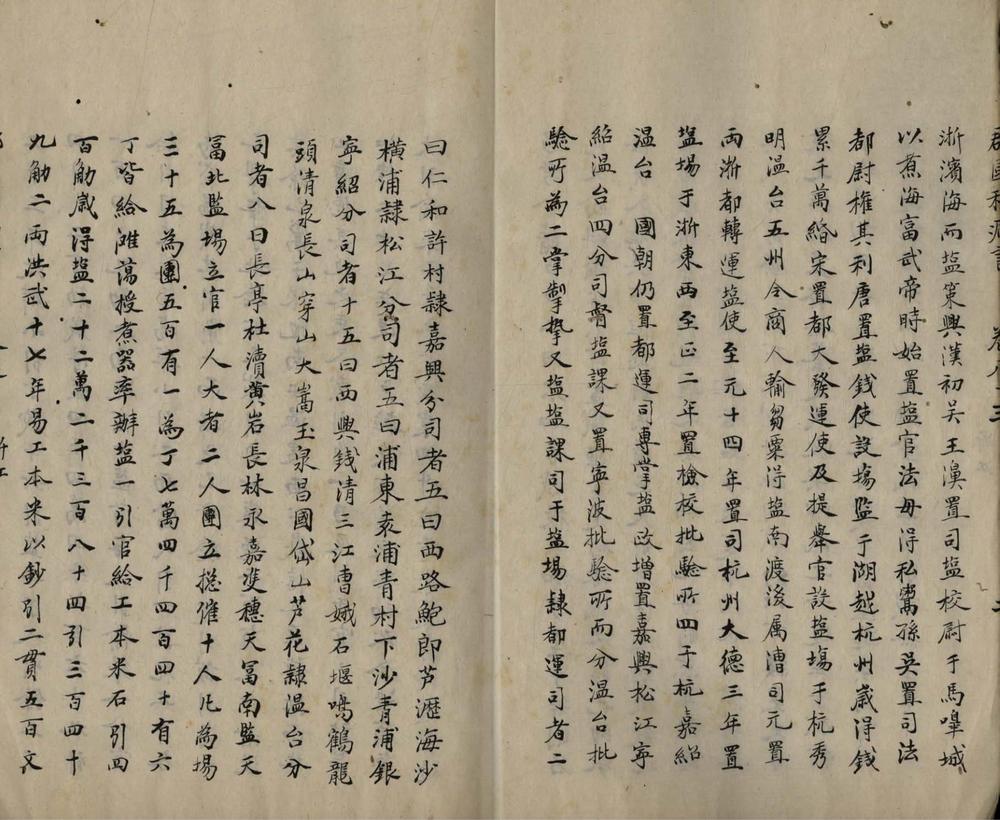 浙濵海而塩䇿興漢初吴王濞置司塩校尉于馬嘷城
以煮海富武帝時始置塩官法毋得私鬻孫吴置司法
都尉榷其利唐置塩錢使設塲監于湖越杭州歳得錢
累千萬緡宋置都大發運使及提舉官設塩塲于杭秀
明温台五州令商人輸芻粟得塩南渡後属漕司元置
兩浙都轉運塩使至元十四年置司杭州大德三年置
塩塲于浙東西至正二年置檢校批驗所四于杭嘉紹
温台　國朝仍置都運司專掌塩政増置嘉興松江寧
紹温台四分司督塩課又置寧波批驗所而分温台批
驗所為二掌掣摯又塩塩課司于塩塲隷都運司者二
曰仁和許村隷嘉興分司者五曰西路鮑郎芦瀝海沙
横浦隷松江分司者五曰浦東袁浦青村下沙青浦銀
寧紹分司者十五曰西興錢清三江曺娥石堰鳴鶴龍
頭清泉長山穿山大嵩玉泉昌國岱山芦花隷温台分
司者八日長亭杜瀆黄岩長林永嘉䨇穗天冨南監天
冨北監塲立官一人大者二人團立緫催十人凡為塲
三十五為團五百有一為丁七萬四千四百四十有六
丁皆給滩蕩授煮器率辦塩一引官給工本米石引四
百觔歳淂塩二十二萬二千三百八十四引三百四十
九觔二兩洪武十七年易工本米以鈔引二貫五百文